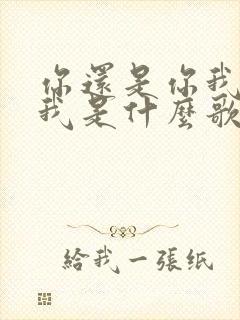 你還是你我
我是什麼歌
給我一張纸